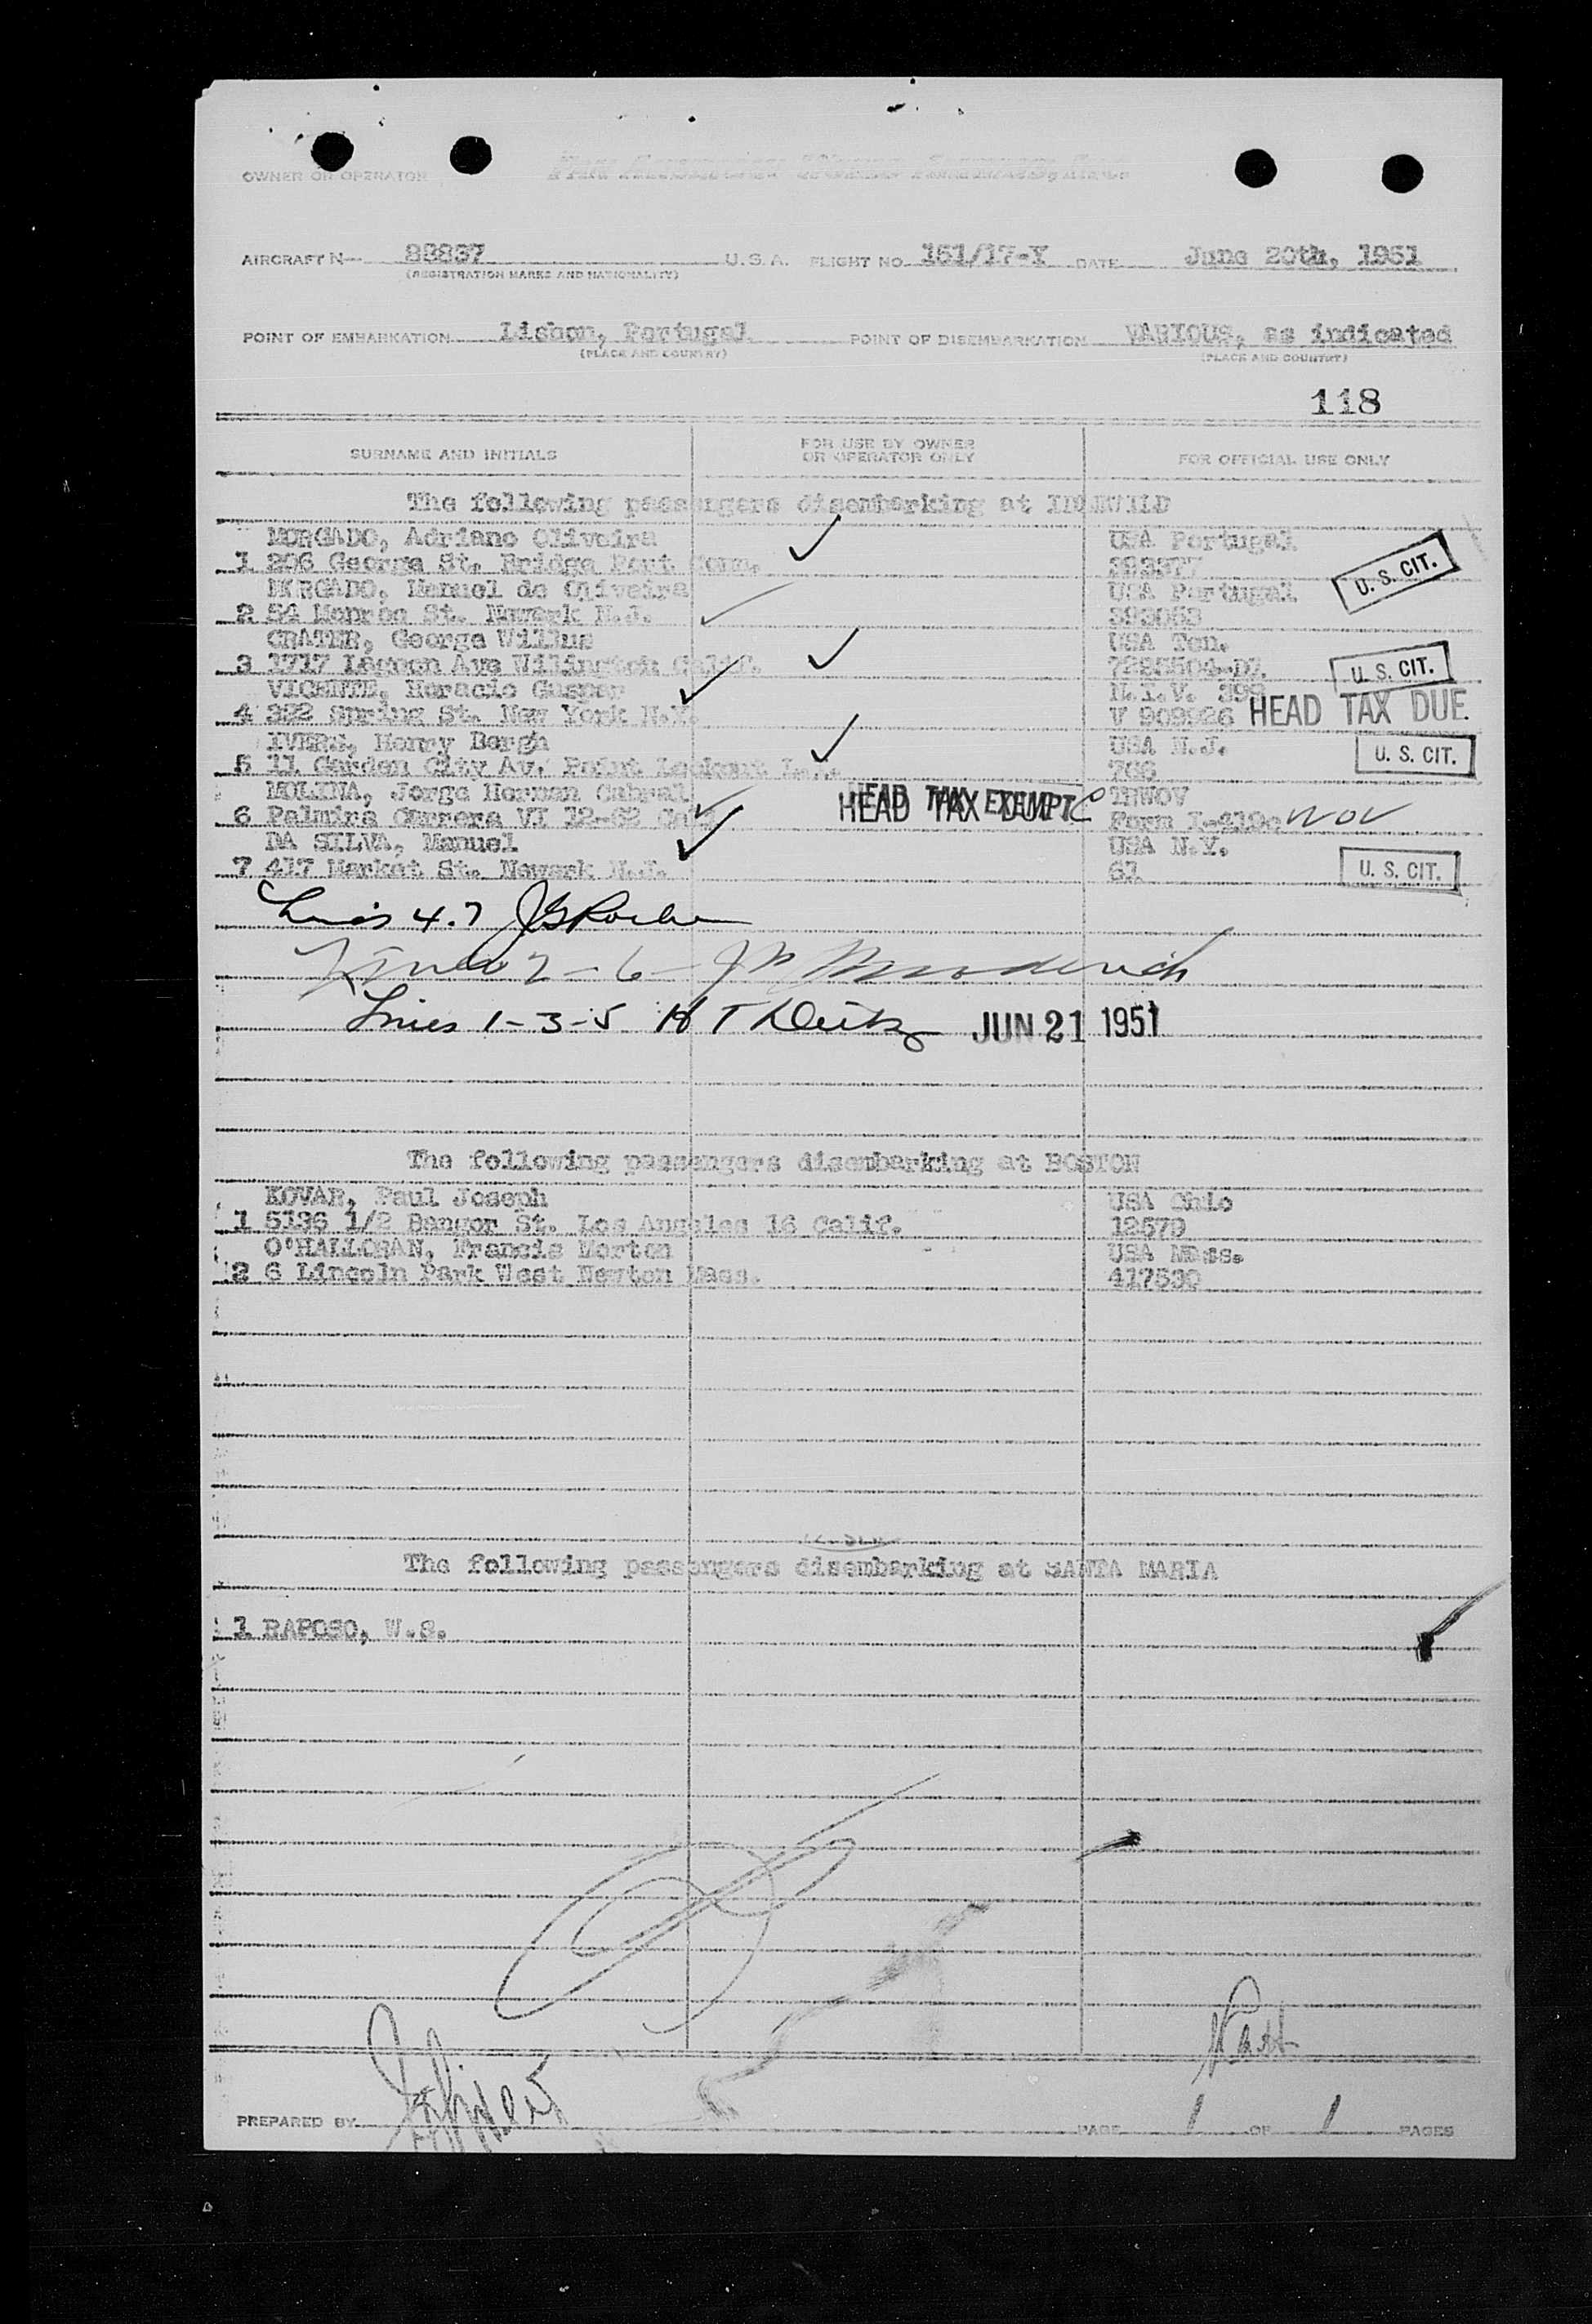 OWNER OR OPERATOR Pan American World Airways, Inc.
AIRCRAFT N— 88837 U.S.A. FLIGHT NO. 151/17-Y DATE June 20th, 1951
(REGISTRATION MARKS AND NATIONALITY)
POINT OF EMBARKATION Lisbon, Portugal POINT OF DISEMBARKATION VARIOUS, as indicated
(PLACE AND COUNTRY) (PLACE AND COUNTRY)
118
SURNAME AND INITIALS FOR USE BY OWNER OR OPERATOR ONLY FOR OFFICIAL USE ONLY
The following passengers disembarking at
MORGADO, Adriano Oliveira USA Portugal
1 206 George St. Bridge Port Conn. U. S. CIT.
MORGADO, Manuel de Oliveira USA Portugal
2 54 Monroe St. Newark N.J. 393063
CRATER, George Willus USA Ten.
3 1717 Lagoon Ave Wilington Calif. U. S. CIT.
VICENTE, Horacio Gaspar N.I.V.
4 322 Spring St. New York N.Y. V 909926 HEAD TAX DUE
IVERS, Henry Bergh USA N.J.
5 11 Garden City Av. Point Lookout 766 U. S. CIT.
MOLINA, Jorge Hernan Cabral TRWOV
6 Palmira Carrera VI HEAD TAX EXEMPT HEAD TAX DUE Form I-419c WOV
DA SILVA, Manuel USA N.Y.
7 417 Market St. Newark N.J. 61 U. S. CIT.
Lines 4.7
2-6
Lines 1-3-5 H T JUN 21 1951
The following passengers disembarking at BOSTON
KOVAR, Paul Joseph USA Ohio
1 5136 1/2 Bangor St. Los Angeles 16 Calif. 12579
O'HALLORAN, Francis Morton USA Mass.
2 6 Lincoln Park West Newton Mass. 417530
The following passengers disembarking at SANTA MARIA
1 RAPOSO, W.S.
PREPARED BY PAGE 1 OF 1 PAGES